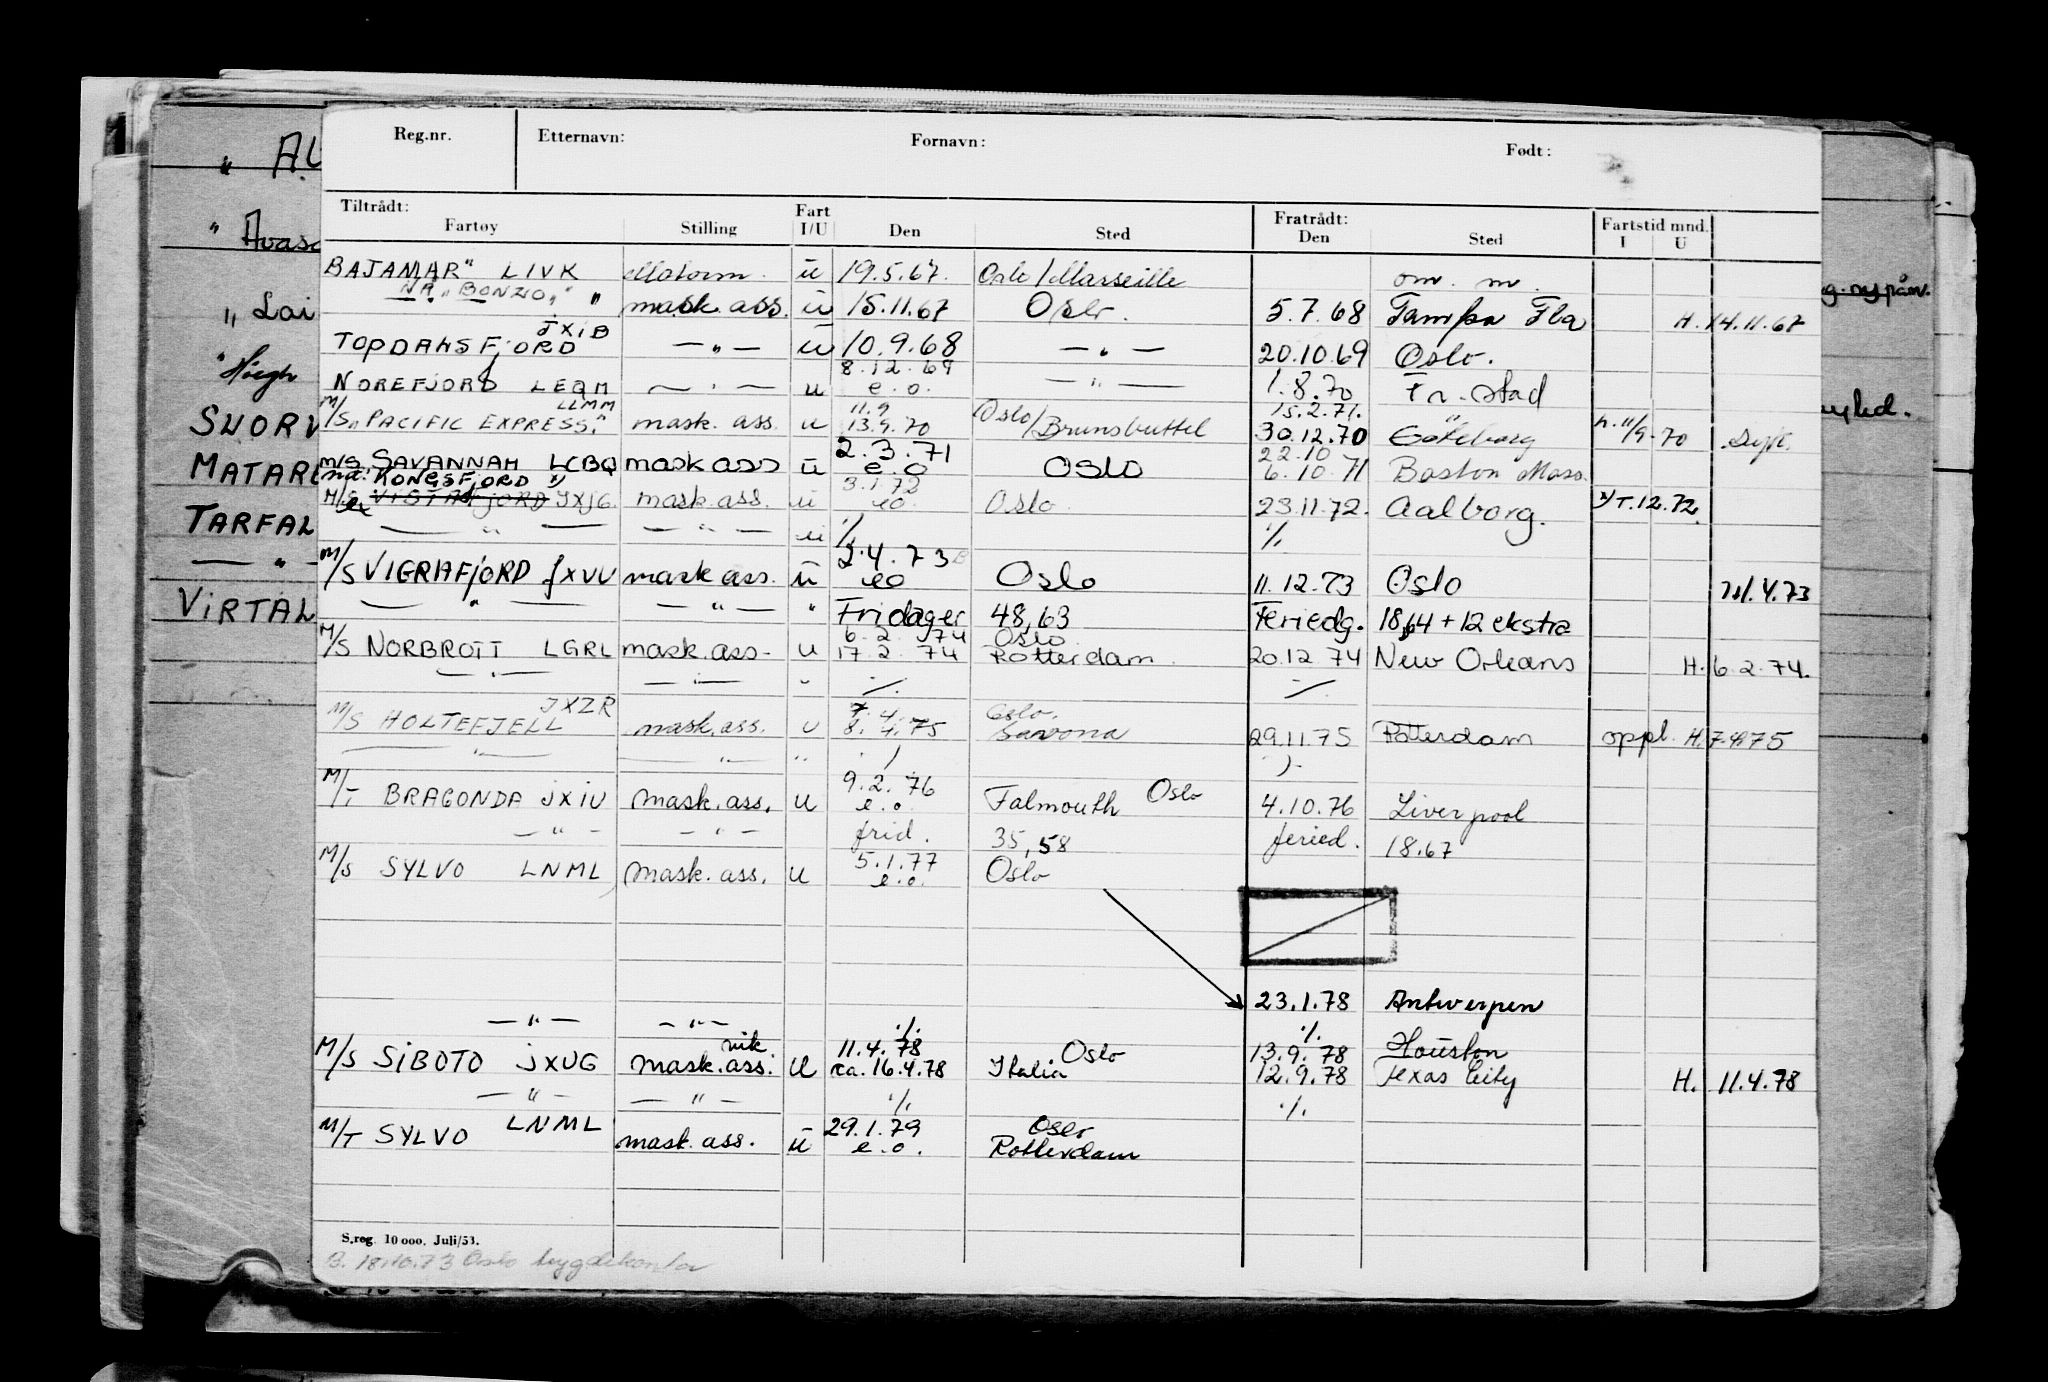 Reg.nr. Etternavn: Fornavn: Født:
Tiltrådt: Fartøy Stilling Fart I/U Den Sted Fratrådt: Den Sted Fartstid mnd. I U
BAJAMAR" LIVK Motorm. ü 19.5.67. Oslo/Marseille om. m.
NÅ "BONZO" " mask.ass. ü 15.11.67 Oslo. 5.7.68 Tampa Fla H. 14.11.67
TOPDALSFJORD JXIB — " — ü 10.9.68 — " — 20.10.69 Oslo.
NOREFJORD LEQM — " — u 8.12.69 e.o. — " — 1.8.70 Fr.stad
M/S "PACIFIC EXPRESS" LLMM mask. ass. u 11.9 13.9.70 Oslo/Brunsbuttel 15.2.71. 30.12.70 " Göteborg h. 11/9-70
M/S. SAVANNAH LCBQ mask ass ü 2.3.71 e.o OSLO 22.10 6.10.71 Boston Mass.
nå: KONGSFJORD x)
M/S JXJG. mask.ass. ü 3.1.72 eo. Oslo 23.11.72. Aalborg. x) T.12.72.
— " — — " — ü ./. ./.
M/S VIGRAFJORD JXVU mask ass. ü 2.4.73 eo Oslo 11.12.73 Oslo 2/.4.73
— " — — " — " Fridager 48,63 Feriedg. 18,64 + 12 ekstra
M/S NORBROTT LGRL mask.ass- u 6.2.74 17.2.74 Oslo Rotterdam. 20.12 74 New Orleans H. 6.2.74.
— " — — " — " ./. ./.
M/S HOLTEFJELL JXZR mask.ass. u 7.4. 8.4.75 Oslo. Savona 29.11.75 Rotterdam oppl. H. 7.4.75
— " — — " — " ./. ./.
M/T BRAGONDA JXIU mask.ass. u 9.2.76 e.o. Falmouth Oslo 4.10.76 Liverpool
— " — — " — frid. 35,58 feried. 18.67
M/S SYLVO LNML mask.ass. u 5.1.77 e.o. Oslo
23.1.78 Antwerpen
— " — — " — ./. ./.
M/S SIBOTO JXUG mask.ass. vik. U 11.4.78 ca. 16.4.78 Oslo Italia 13.9.78 12.9.78 Houston Texas City H. 11.4.78
— " — — " — ./. ./.
M/T SYLVO LNML mask.ass. ü 29.1.79 e.o. Oslo Rotterdam
S.reg. 10 000. Juli/53.
B. 18.10.73 Oslo trygdekontor
" Lai
" Høegh
SUORV
MATARE
TARFAL
— " —
VIRTAL